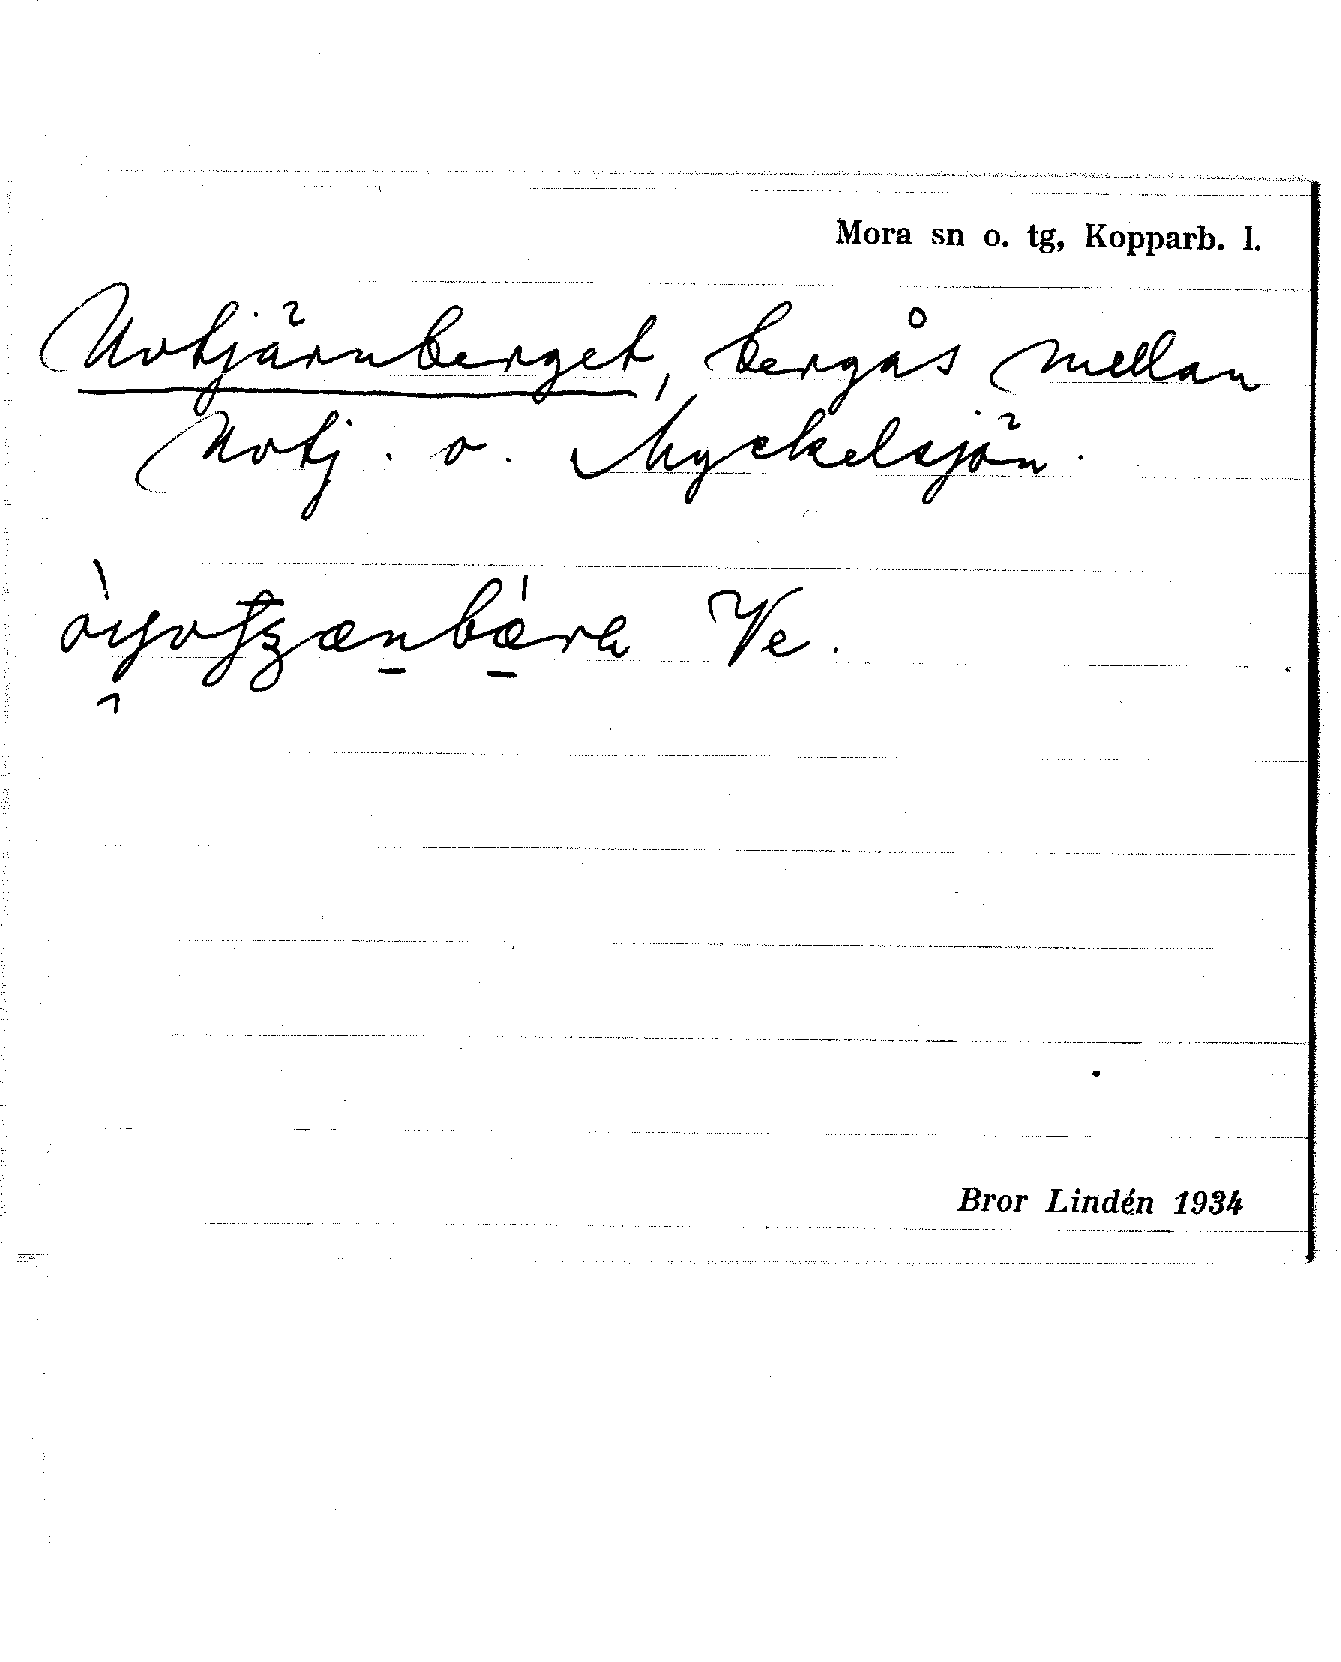 Mora sn o. tg, Kopparb. l.
Notjärnberget, bergås mellan
Notj. o. Myckelsjön.
Ve.
Bror Lindén 1934